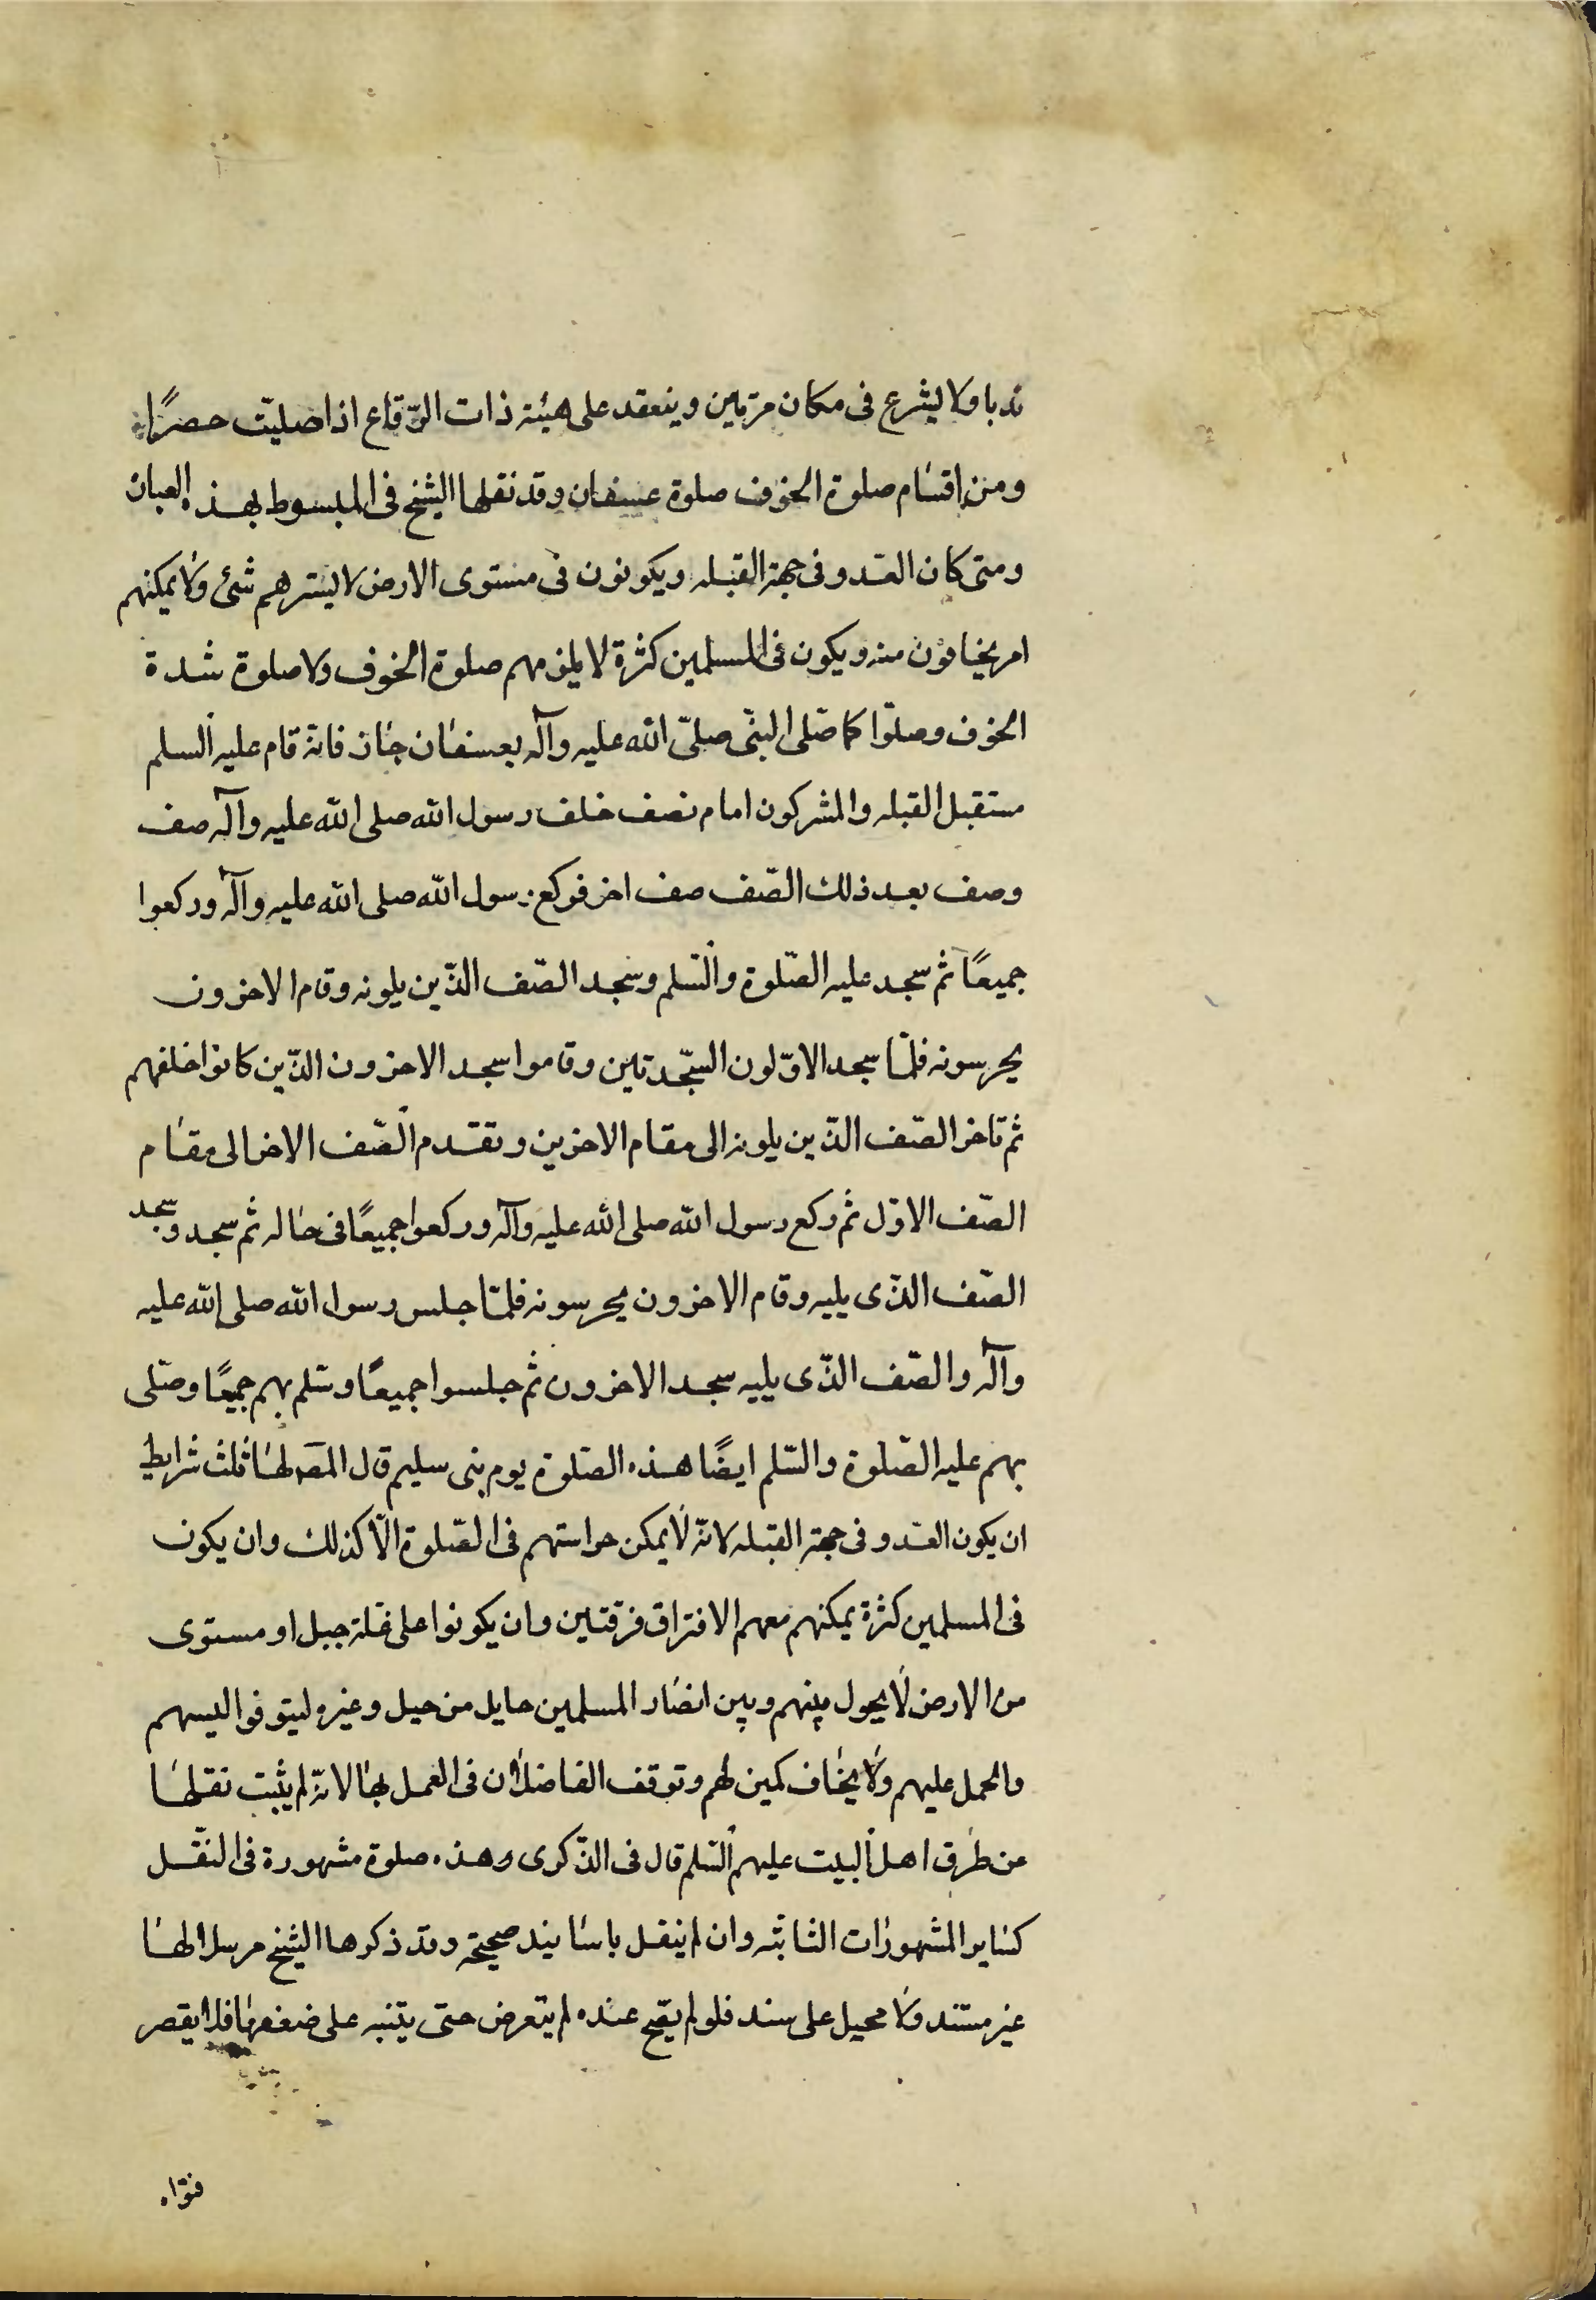 ندبا ولا يشرع فى مكان مرتين وينعقد على هيئة ذات الرّقاع اذا صليّت حصرًا
ومن اقسام صلوة الخوف صلوة عسفان وقد نقلها الشيخ فى المبسوط بهذه العبان
ومتى كان العدو فى جهة القبله ويكونون فى مستوى الارض لا يسترهم شئ ولا يمكنهم
امر يخافون منه ويكون فى المسلمين كثرة لا يلزمهم صلوة الخوف ولا صلوة شدة
الخوف وصلّوا كما صلّى النبىّ صلىّ الله عليه وآله بعسفان جاز فانه قام عليه السلم
مستقبل القبله والمشركون امام نصف خلف رسول الله صلى الله عليه وآله صف
وصف بعد ذلك الصّف صف اخر فركع رسول الله صلى الله عليه وآله وركعوا
جميعًا ثم سجد عليه الصّلوة والسّلم وسجد الصّف الذّين يلونه وقام الاخرون
يحرسونه فلمّا سجد الاوّلون السّجدتين وقاموا سجد الاخرون الذّين كانوا خلفهم
ثم تاخر الصّف الذّين يلونه الى مقام الاخرين وتقدم الصّف الاخر الى مقام
الصّف الاوّل ثم ركع رسول الله صلى الله عليه وآله وركعوا جميعًا فى حاله ثم سجد وسجد
الصّف الذّى يليه وقام الاخرون يحرسونه فلمّا جلس رسول الله صلى الله عليه
وآله والصّف الذّى يليه سجد الاخرون ثم جلسوا جميعًا وسّلم بهم جميعًا وصّلى
بهم عليه الصّلوة والسّلم ايضًا هذه الصّلوة يوم بنى سليم قال المصه لها ثلث شرايط
ان يكون العدو فى جهة القبله لانه لا يمكن حراستهم فى الصّلوة الّا كذلك وان يكون
فى المسلمين كثرة يمكنهم معهم الافتراق فرقتين وان يكونوا على قلة جبل او مستوى
من الارض لا يحول بينهم وبين ابصار المسلمين حايل من جبل وغيره ليتوقوا اليسهم
والحمل عليهم ولا يخاف كمين لهم وتوقف الفاضلان فى العمل بها لانّه لم يثبت نقلها
عن طرق اهل البيت عليهم السّلم قال فى الذّكرى وهذه صلوة مشهورة فى النّقل
كساير المشهورات الثابته وان لم ينقل باسانيد صحيحة وقد ذكرها الشيخ مرسلا لها
غير مسند ولا محيل على سند فلو لم يصح عنده لم يتعرض حتى يتنبه على ضعفها فلا يقصر
فتواه